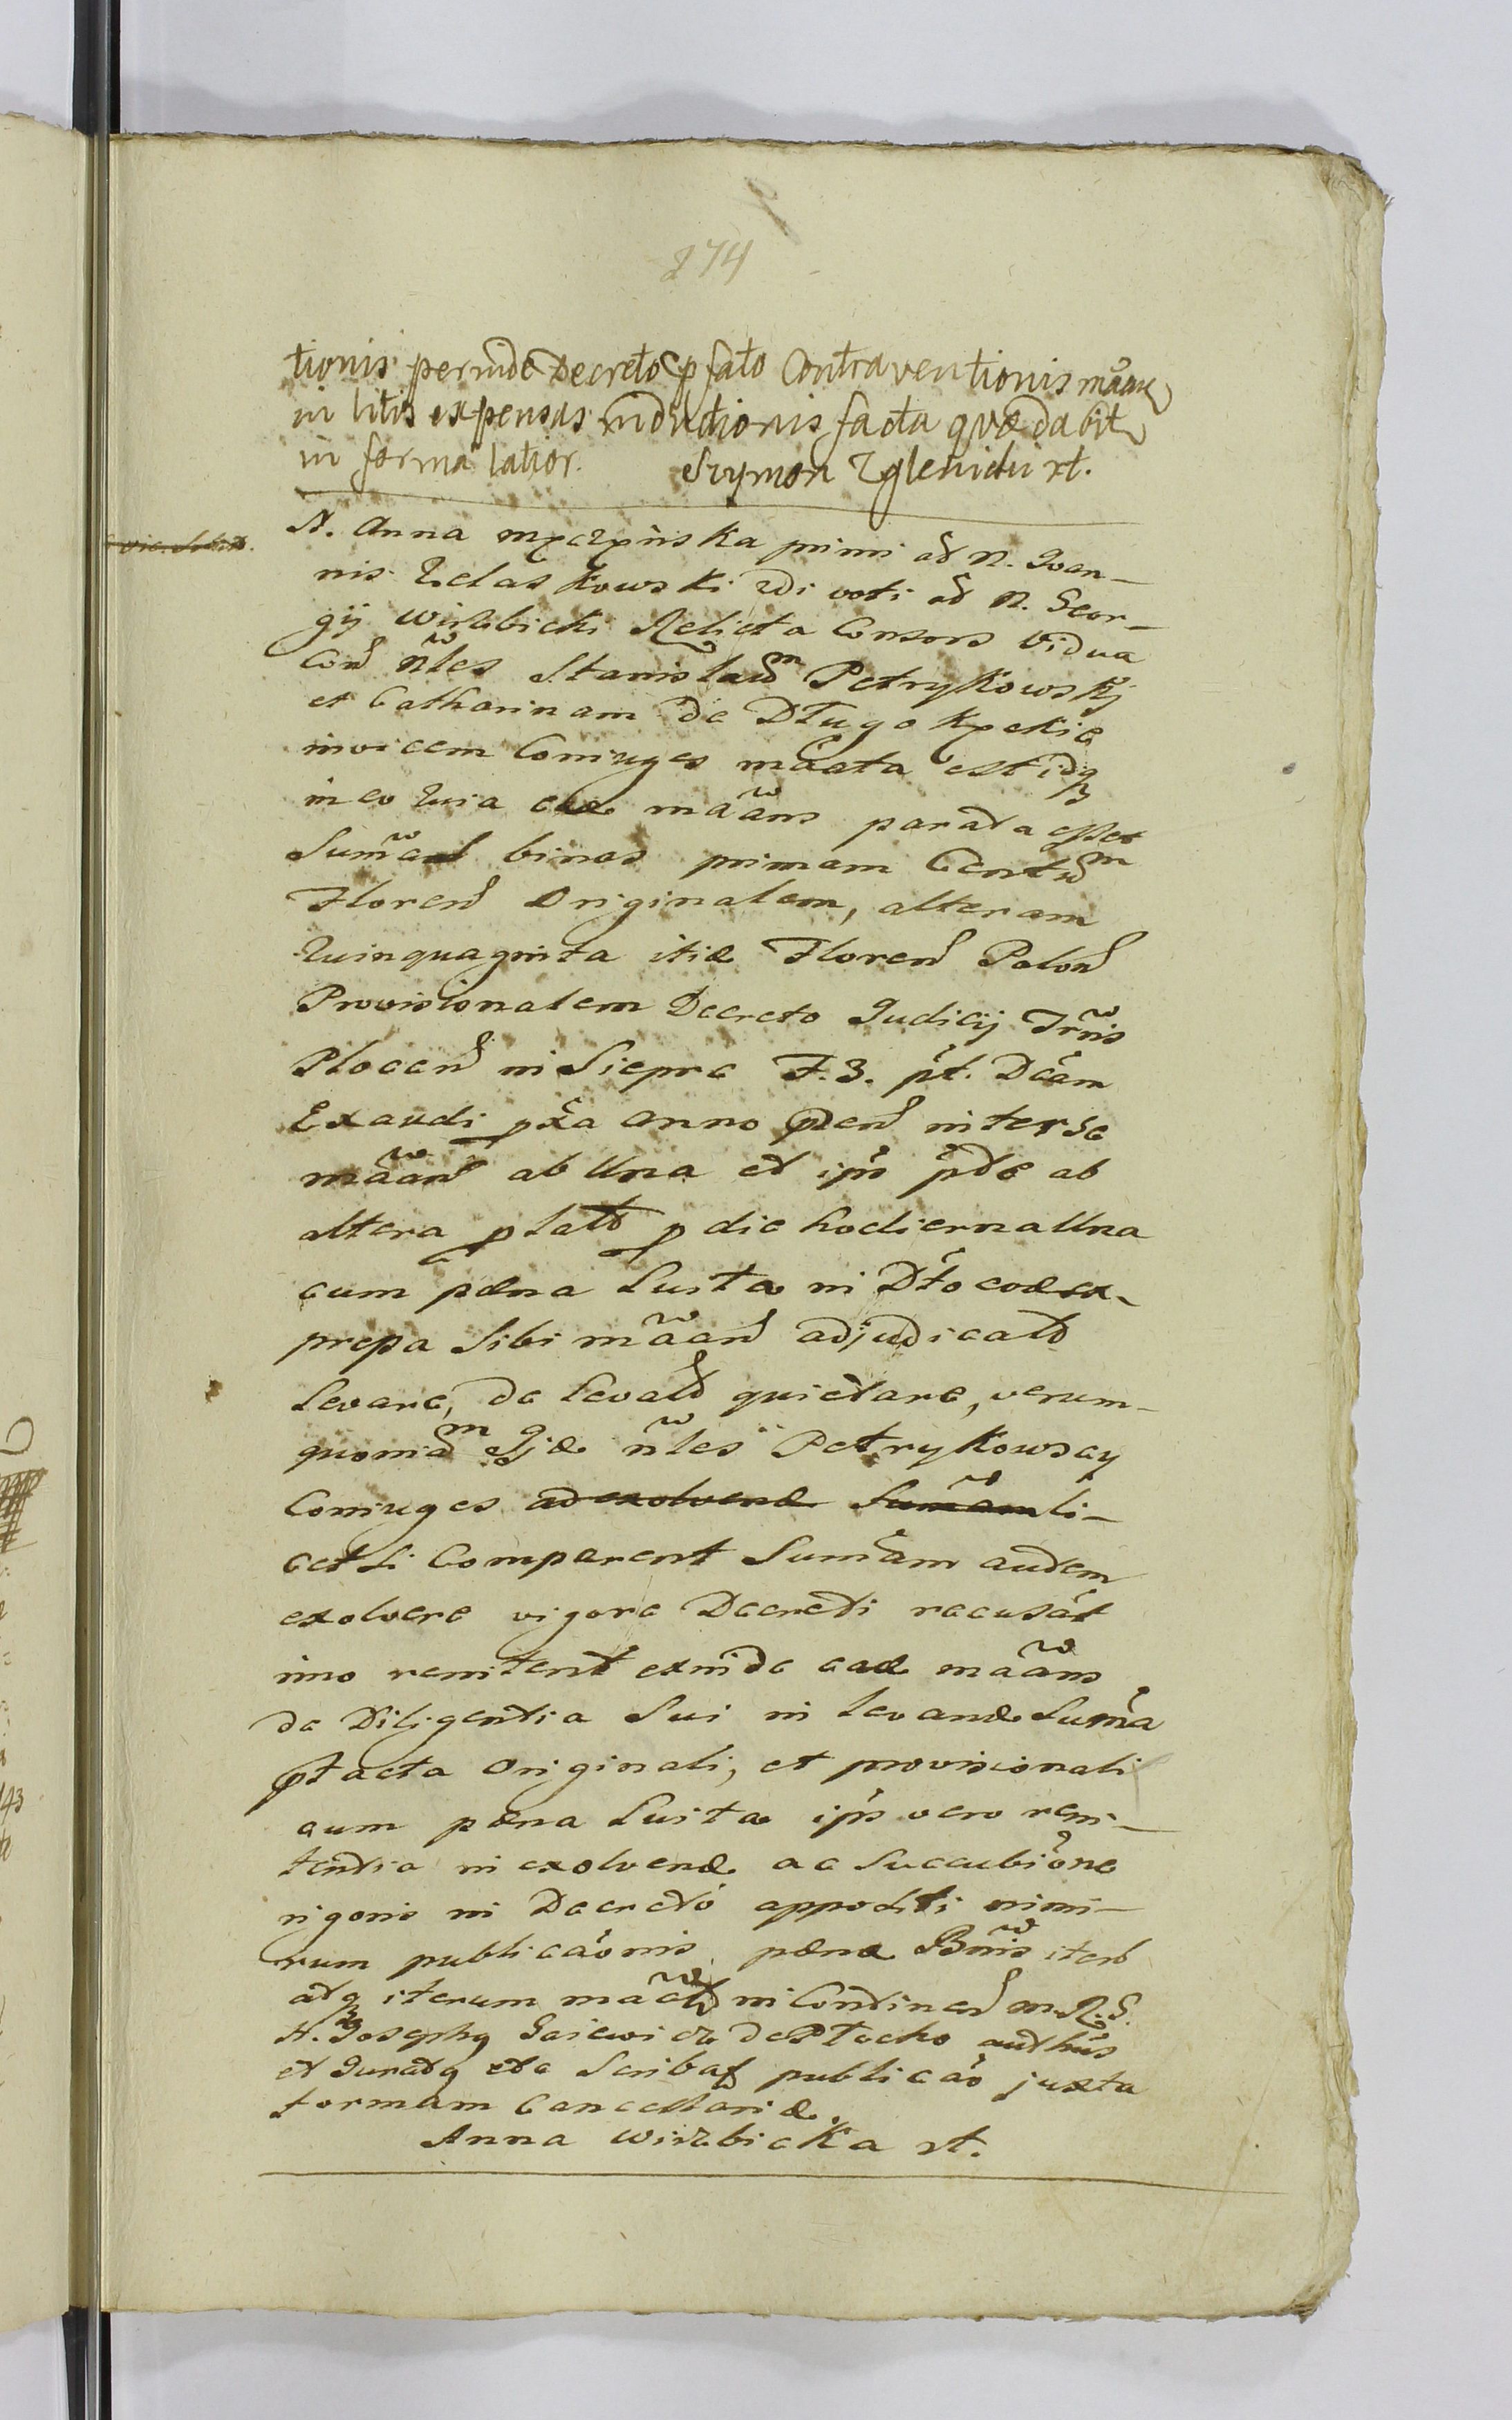 274
tionis perinde Decreto pfato Contraventionis mãan
in litis expensas inductionis facta quæ dabit
in forma latior. Szymon Zglenicki xt.
N. Anna mxczxinska primi ad N. Joan-
nis Zelaskowski 2di voti ad N. Geor-
gij Wirzbicki Relicta Consors Vidua
Con nles Stanislaum Petrykowskj
et Catharinam de Długokxekie
invicem Coniuges mãata est idq
in eo quia eadæ mãans parata esset
Sumãs binas primam Centum
Floren Originalem, alteram
Quinquaginta itidæ Floren Polon
Provisionalem Decreto Judicij Trris
Plocen in Sieprc F. 3. pt. Dcam
Exaudi pxa anno præn inter se
mãan ab Una et ips pdæ ab
altera plat p die hodierna Una
cum pæna Luita in Dto eod ex-
pressa sibi mãan adjudicat
Levare, de Levat quietare, verum-
quoniam Jidæ nles Petrykowscy
Coniuges ad exolvend Sumam li-
cet si Comparent Sumam autem
exolvere vigore Decreti recusat
imo renitent exinde eadæ mãans
de Diligentia Sui in levand Suma
ptacta Originali, et provisionali
cum pæna Luita ips vero reni-
tentia in exolvend ac Succubione
rigoris in Decreto appositi nimi-
rum publicaonis pænæ Bnnis iterũ
atq iterum mãat in Continen m. R. G.
N. Josephq Gaiewicz de Płocko authus
et Juratq eta Scribaq publicao juxta
formam Cancellariæ
Anna Wirzbicka xt.